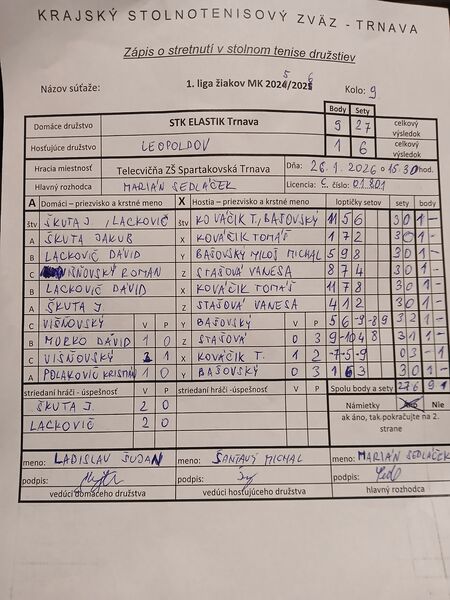 KRAJSKÝ STOLNOTENISOVÝ ZVÄZ - TRNAVA
Zápis o stretnutí v stolnom tenise družstiev
Názov súťaže: 1. liga žiakov MK 2025/2026 Kolo: 9
Body Sety
Domáce družstvo STK ELASTIK Trnava 9 27 celkový výsledok
Hosťujúce družstvo LEOPOLDOV 1 6 celkový výsledok
Hracia miestnosť Telecvičňa ZŠ Spartakovská Trnava Dňa: 26.1.2026 o 15:30 hod.
Hlavný rozhodca MARIÁN SEDLÁČEK Licencia č. číslo: 01.801
A Domáci – priezvisko a krstné meno X Hostia – priezvisko a krstné meno loptičky setov sety body
štv ŠKUTA J, LACKOVIČ štv KOVÁČIK T, BAŠOVSKÝ 11 5 6 3 0 1 -
A ŠKUTA JAKUB X KOVÁČIK TOMÁŠ 1 7 2 3 0 1 -
B LACKOVIČ DÁVID Y BAŠOVSKÝ MILOŠ MICHAL 5 9 8 3 0 1 -
C VIŠŇOVSKÝ ROMAN Z STAŠOVÁ VANESA 8 7 4 3 0 1 -
B LACKOVIČ DÁVID X KOVÁČIK TOMÁŠ 11 7 8 3 0 1 -
A ŠKUTA J. Z STAŠOVÁ VANESA 4 1 2 3 0 1 -
C VIŠŇOVSKÝ V P Y BAŠOVSKÝ V P 5 6 -9 -8 9 3 2 1 -
B MORKO DÁVID 1 0 Z STAŠOVÁ 0 3 9 -10 4 8 3 1 1 -
C VIŠŇOVSKÝ 1 X KOVÁČIK T. 1 2 -7 -5 -9 0 3 - 1
A POLAKOVIČ 1 0 Y BAŠOVSKÝ 0 3 1 6 3 3 0 1 -
striedaní hráči - úspešnosť V P striedaní hráči - úspešnosť V P Spolu body a sety 27 6 9 1
ŠKUTA J. 2 0 Námietky Áno Nie
LACKOVIČ 2 0 ak áno, tak pokračujte na 2. strane
meno: LADISLAV meno: ŠANTAVÝ MICHAL meno: MARIÁN SEDLÁČEK
podpis: podpis: podpis:
vedúci domáceho družstva vedúci hosťujúceho družstva hlavný rozhodca